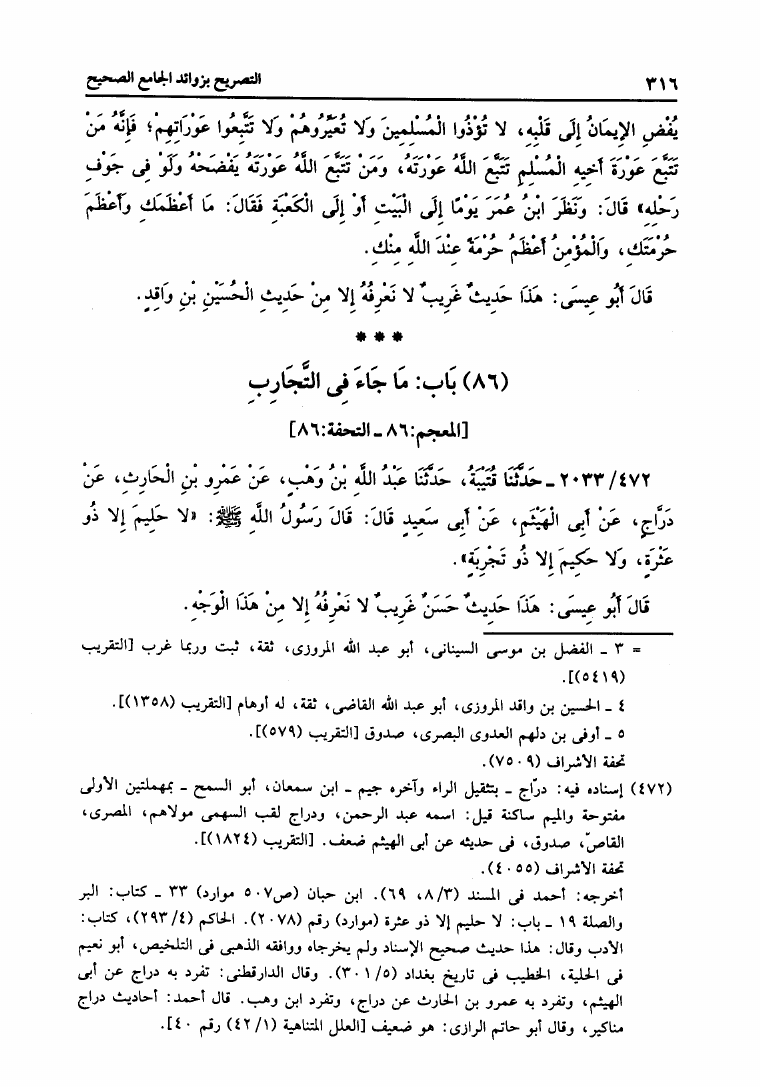 ٣١٦ التصريح بزوائد الجامع الصحيح
يُفْضِ الإِيمَانُ إِلَى قَلْبِهِ، لا تُؤْذُوا الْمُسْلِمِينَ وَلا تُعَيِّرُوهُمْ وَلا تَتَّبِعُوا عَوْرَاتِهِمْ؛ فَإِنَّهُ مَنْ
تَتَبَّعَ عَوْرَةَ أَخِيهِ الْمُسْلِمِ تَتَبَّعَ اللَّهُ عَوْرَتَهُ، وَمَنْ تَتَبَّعَ اللَّهُ عَوْرَتَهُ يَفْضَحْهُ وَلَوْ فِى جَوْفِ
رَحْلِهِ» قَالَ: وَنَظَرَ ابْنُ عُمَرَ يَوْمًا إِلَى الْبَيْتِ أَوْ إِلَى الْكَعْبَةِ فَقَالَ: مَا أَعْظَمَكِ وَأَعْظَمَ
حُرْمَتَكِ، وَالْمُؤْمِنُ أَعْظَمُ حُرْمَةً عِنْدَ اللَّهِ مِنْكِ.
قَالَ أَبُو عِيسَى: هَذَا حَدِيثٌ غَرِيبٌ لا نَعْرِفُهُ إِلا مِنْ حَدِيثِ الْحُسَيْنِ بْنِ وَاقِدٍ.
* * *
(٨٦) بَاب: مَا جَاءَ فِى التَّجَارِبِ
[المعجم:٨٦ ـ التحفة:٨٦]
٢٠٣٣/٤٧٢ ـ حَدَّثَنَا قُتَيْبَةُ، حَدَّثَنَا عَبْدُ اللَّهِ بْنُ وَهْبٍ، عَنْ عَمْرِو بْنِ الْحَارِثِ، عَنْ
دَرَّاجٍ، عَنْ أَبِى الْهَيْثَمِ، عَنْ أَبِى سَعِيدٍ قَالَ: قَالَ رَسُولُ اللَّهِ ﷺ: «لا حَلِيمَ إِلا ذُو
عَثْرَةٍ، وَلا حَكِيمَ إِلا ذُو تَجْرِبَةٍ».
قَالَ أَبُو عِيسَى: هَذَا حَدِيثٌ حَسَنٌ غَرِيبٌ لا نَعْرِفُهُ إِلا مِنْ هَذَا الْوَجْهِ.
= ٣ ـ الفضل بن موسى السينانى، أبو عبد الله المروزى، ثقة، ثبت وربما غرب [التقريب
(٥٤١٩)].
٤ ـ الحسين بن واقد المروزى، أبو عبد الله القاضى، ثقة، له أوهام [التقريب (١٣٥٨)].
٥ ـ أوفى بن دلهم العدوى البصرى، صدوق [التقريب (٥٧٩)].
تحفة الأشراف (٧٥٠٩).
(٤٧٢) إسناده فيه: درّاج ـ بتثقيل الراء وآخره جيم ـ ابن سمعان، أبو السمح ـ بمهملتين الأولى
مفتوحة والميم ساكنة قيل: اسمه عبد الرحمن، ودراج لقب السهمى مولاهم، المصرى،
القاصّ، صدوق، فى حديثه عن أبى الهيثم ضعف. [التقريب (١٨٢٤)].
تحفة الأشراف (٤٠٥٥).
أخرجه: أحمد فى المسند (٨/٣، ٦٩). ابن حبان (ص٥٠٧ موارد) ٣٣ ـ كتاب: البر
والصلة ١٩ ـ باب: لا حليم إلا ذو عثرة (موارد) رقم (٢٠٧٨). الحاكم (٢٩٣/٤)، كتاب:
الأدب وقال: هذا حديث صحيح الإسناد ولم يخرجاه ووافقه الذهبى فى التلخيص، أبو نعيم
فى الحلية، الخطيب فى تاريخ بغداد (٣٠١/٥). وقال الدارقطنى: تفرد به دراج عن أبى
الهيثم، وتفرد به عمرو بن الحارث عن دراج، وتفرد ابن وهب. قال أحمد: أحاديث دراج
مناكير، وقال أبو حاتم الرازى: هو ضعيف [العلل المتناهية (٤٢/١) رقم ٤٠].